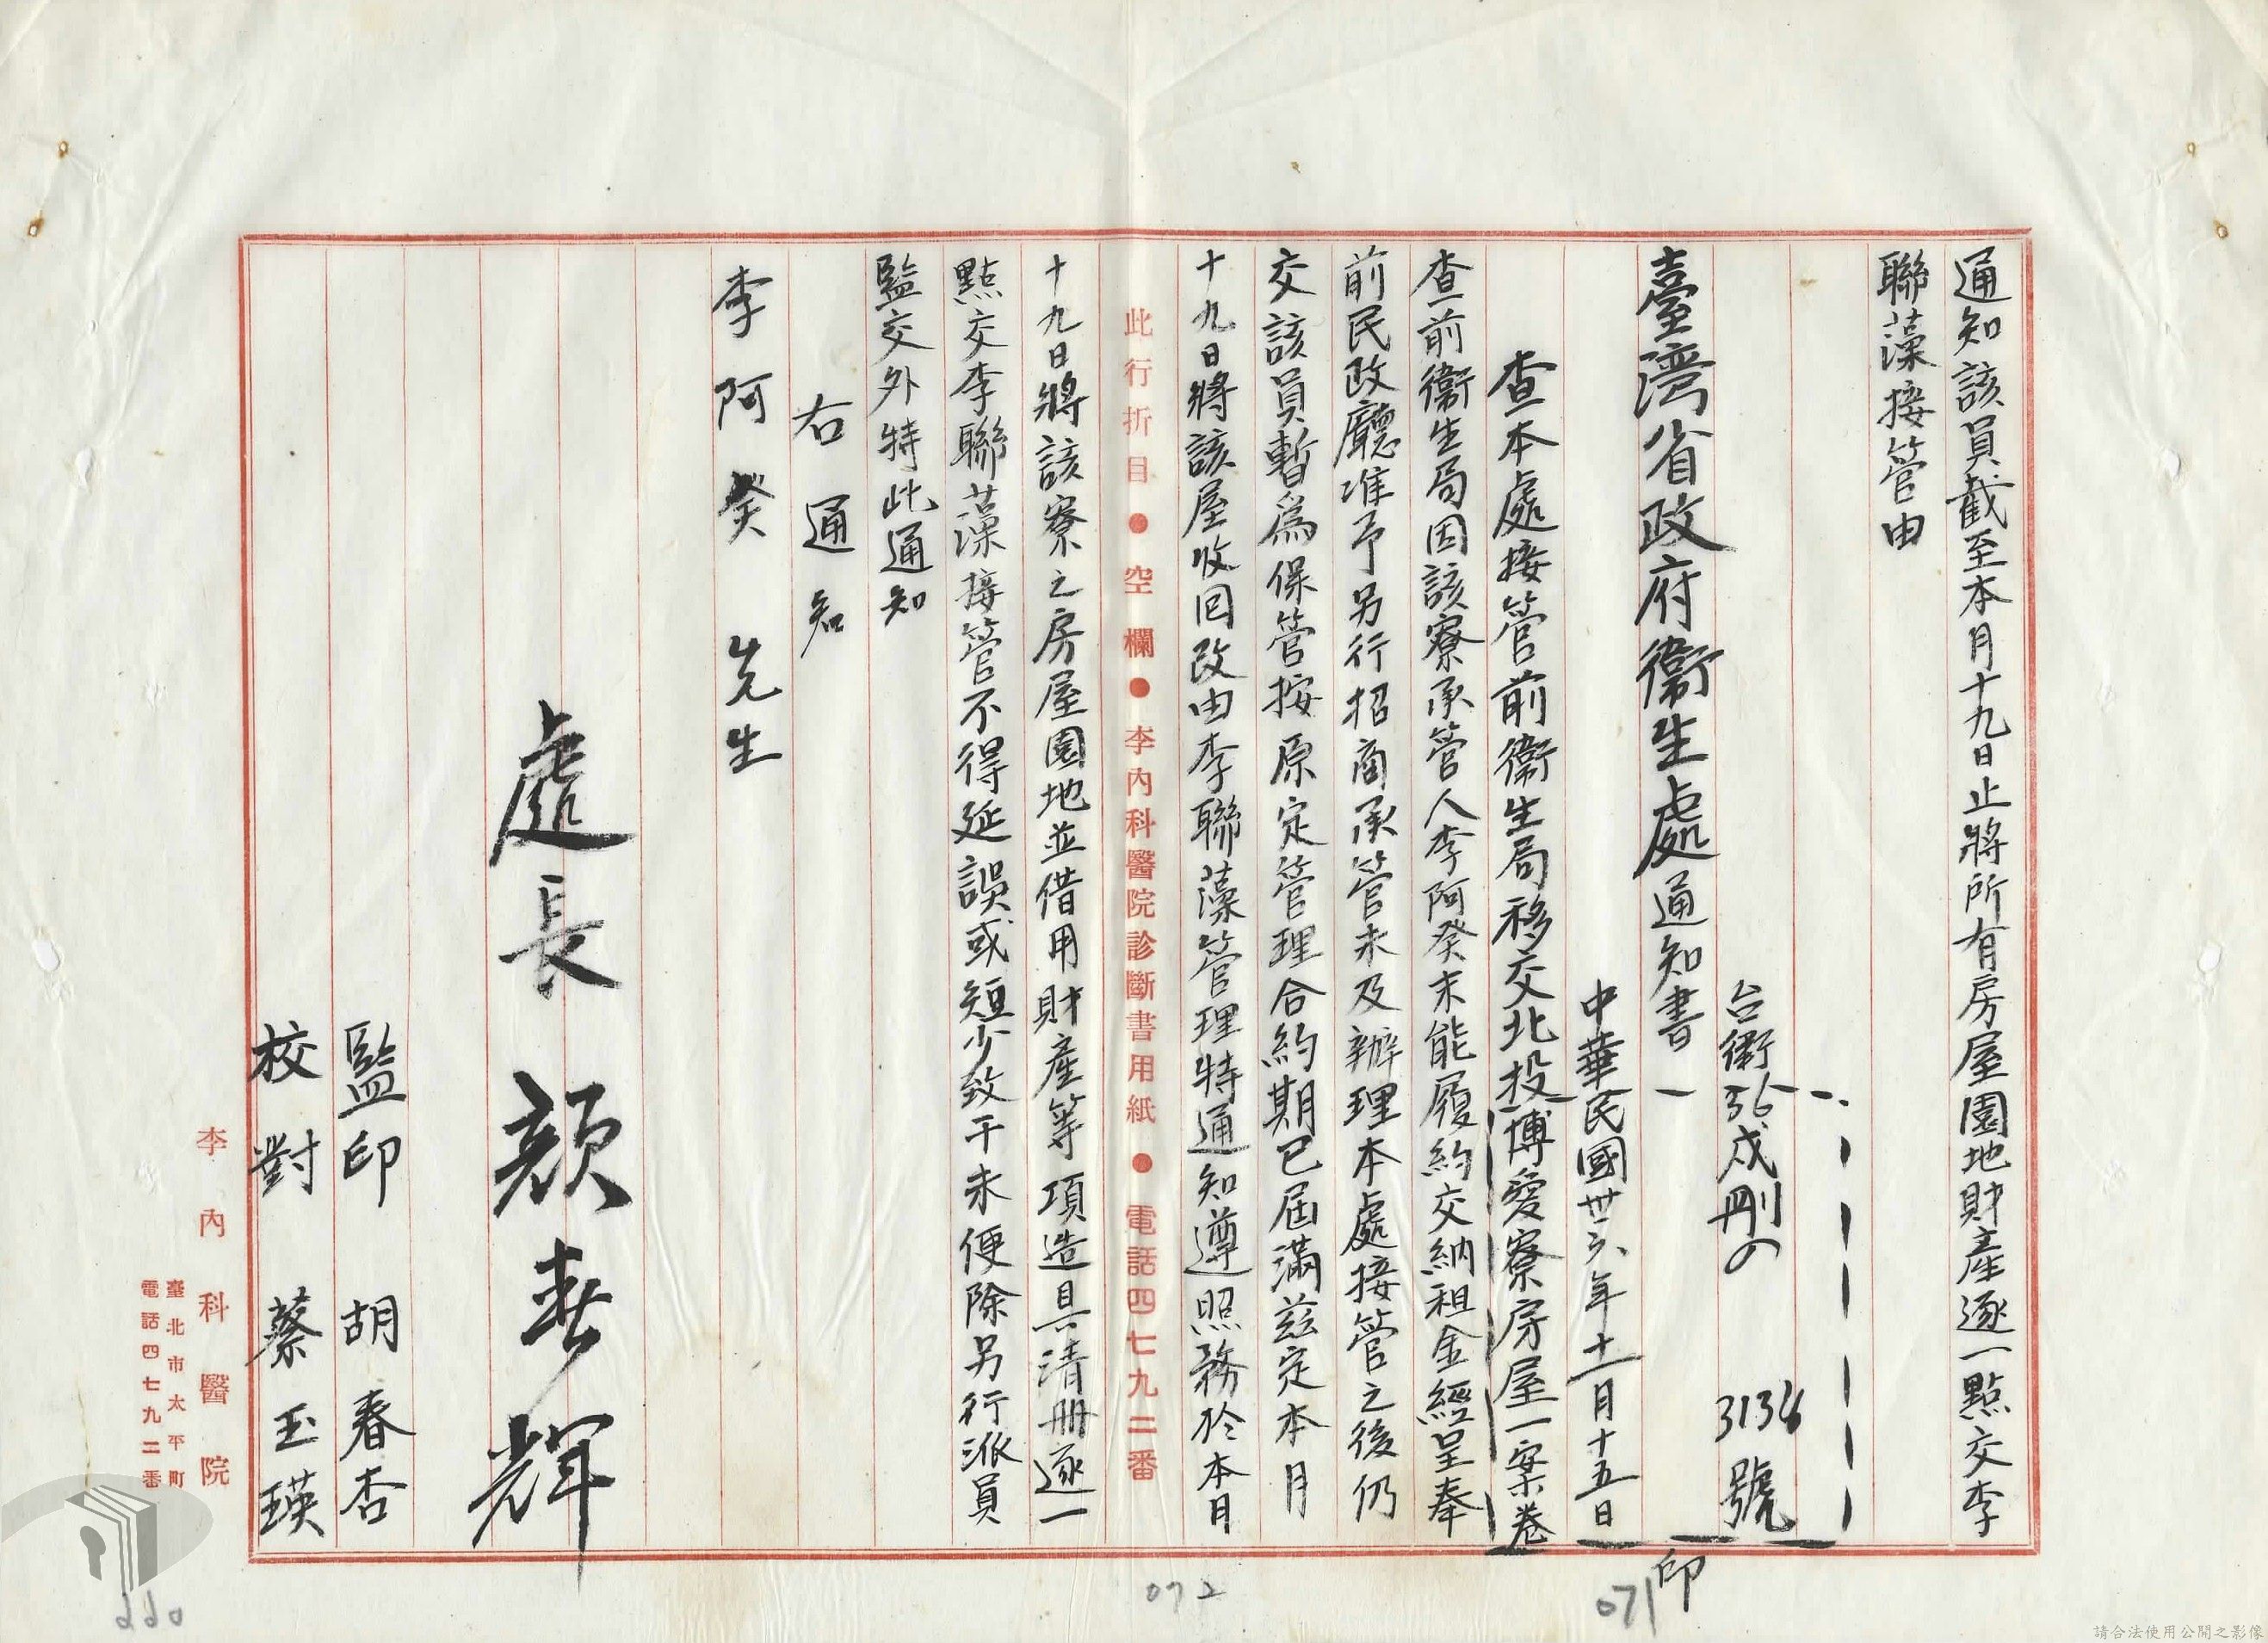 通知該員截至本月十九日止將所有房屋園地財產逐一點交李
聯藻接管由
台衛36戌剛の 3136號
臺湾省政府衛生處通知書
印
中華民國卅六年十一月十五日
查本處接管前衛生局移交北投博愛寮房屋一案卷
查前衛生局因該寮承管人李阿癸未能履約交納租金經呈奉
前民政廳准予另行招商承管未及辦理本處接管之後仍
交該員暫為保管按原定管理合約期已屆滿茲定本月
十九日將該屋收回改由李聯藻管理特通知遵照務於本月
此行折目●空欄●李內科醫院診斷書用紙●電話四七九二番
十九日將該寮之房屋園地並借用財產等項造具清冊逐一
點交李聯藻接管不得延誤或短少致干未便除另行派員
監交外特此通知
右通知
李阿癸 先生
處長 顏春輝
監印 胡春杏
校對 蔡玉瑛
李內科醫院
臺北市太平町
電話四七九二番
071
072
請合法使用公開之影像